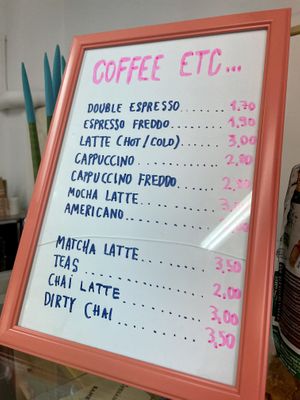 COFFEE ETC...
DOUBLE ESPRESSO ........ 1,70
ESPRESSO FREDDO ........ 1,90
LATTE (HOT/COLD) ....... 3,00
CAPPUCCINO ........ 2,80
CAPPUCCINO FREDDO .......
MOCHA LATTE ........
AMERICANO ........
MATCHA LATTE ........ 3,50
TEAS ........ 2,00
CHAI LATTE ........ 3,00
DIRTY CHAI ........ 3,50